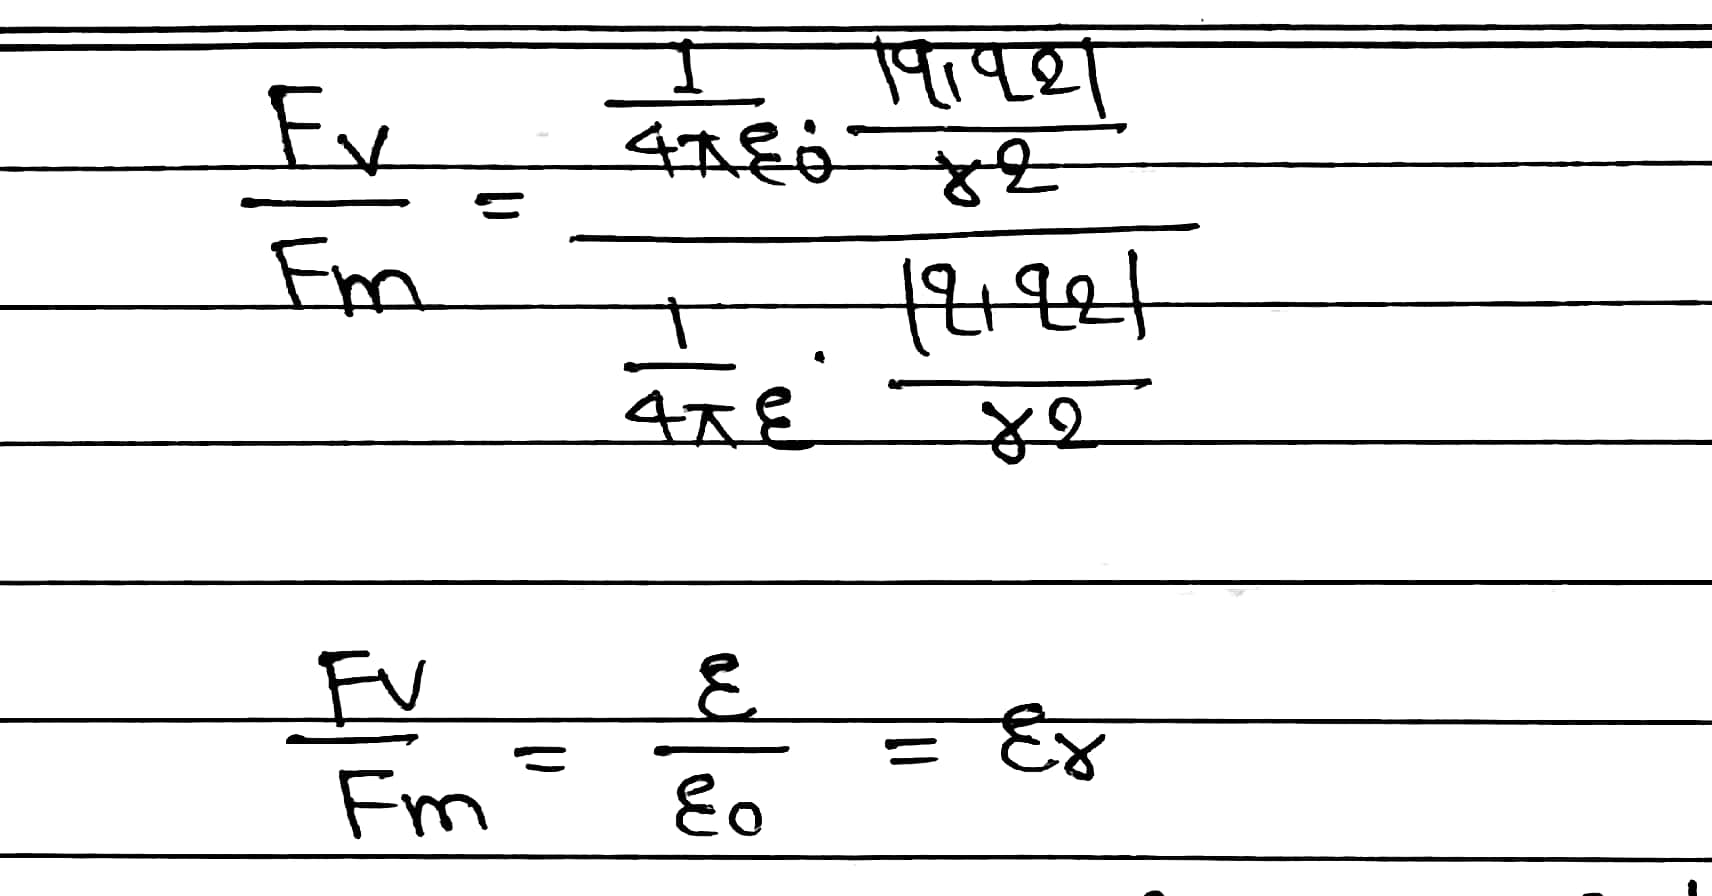 Fv/Fm = (1/4πε0 · |q1q2|/r2) / (1/4πε · |q1q2|/r2)
Fv/Fm = ε/ε0 = εr